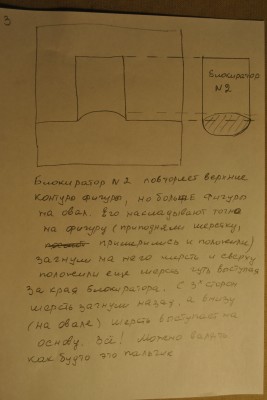 3
Блокиратор
N 2
Блокиратор N 2 повторяет верхние
контуры фигуры, но больше фигуры
на овал. Его накладывают точно
на фигуру (приподняли шерстку,
примерились и положили)
загнули на него шерсть и сверху
положили еще шерсть чуть выступая
за края блокиратора. С 3х сторон
шерсть загнули назад, а внизу
(на овале) шерсть выступает на
основу. Всё! Можно валять
как будто это пальчик